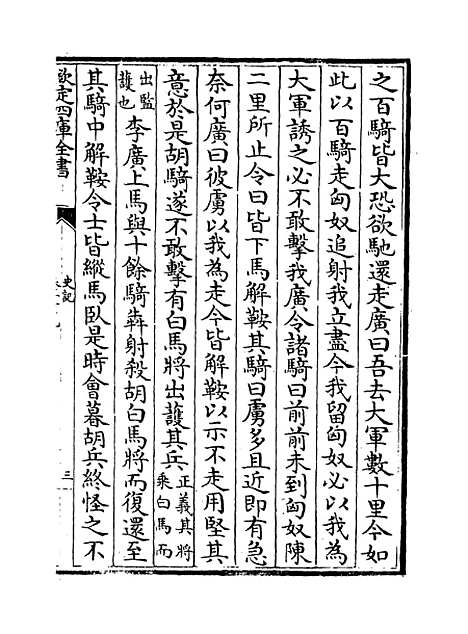 之百騎皆大恐欲馳還走廣曰吾去大軍數十里今如
此以百騎走匈奴追射我立盡今我留匈奴必以我為
大軍誘之必不敢擊我廣令諸騎曰前前未到匈奴陳
二里所止令曰皆下馬解鞍其騎曰虜多且近即有急
奈何廣曰彼虜以我為走今皆解鞍以示不走用堅其
意於是胡騎遂不敢擊有白馬將出護其兵正義其將
乘白馬而
出監
護也李廣上馬與十餘騎犇射殺胡白馬將而復還至
其騎中解鞍令士皆縱馬臥是時會暮胡兵終怪之不
欽定四庫全書
史記
三